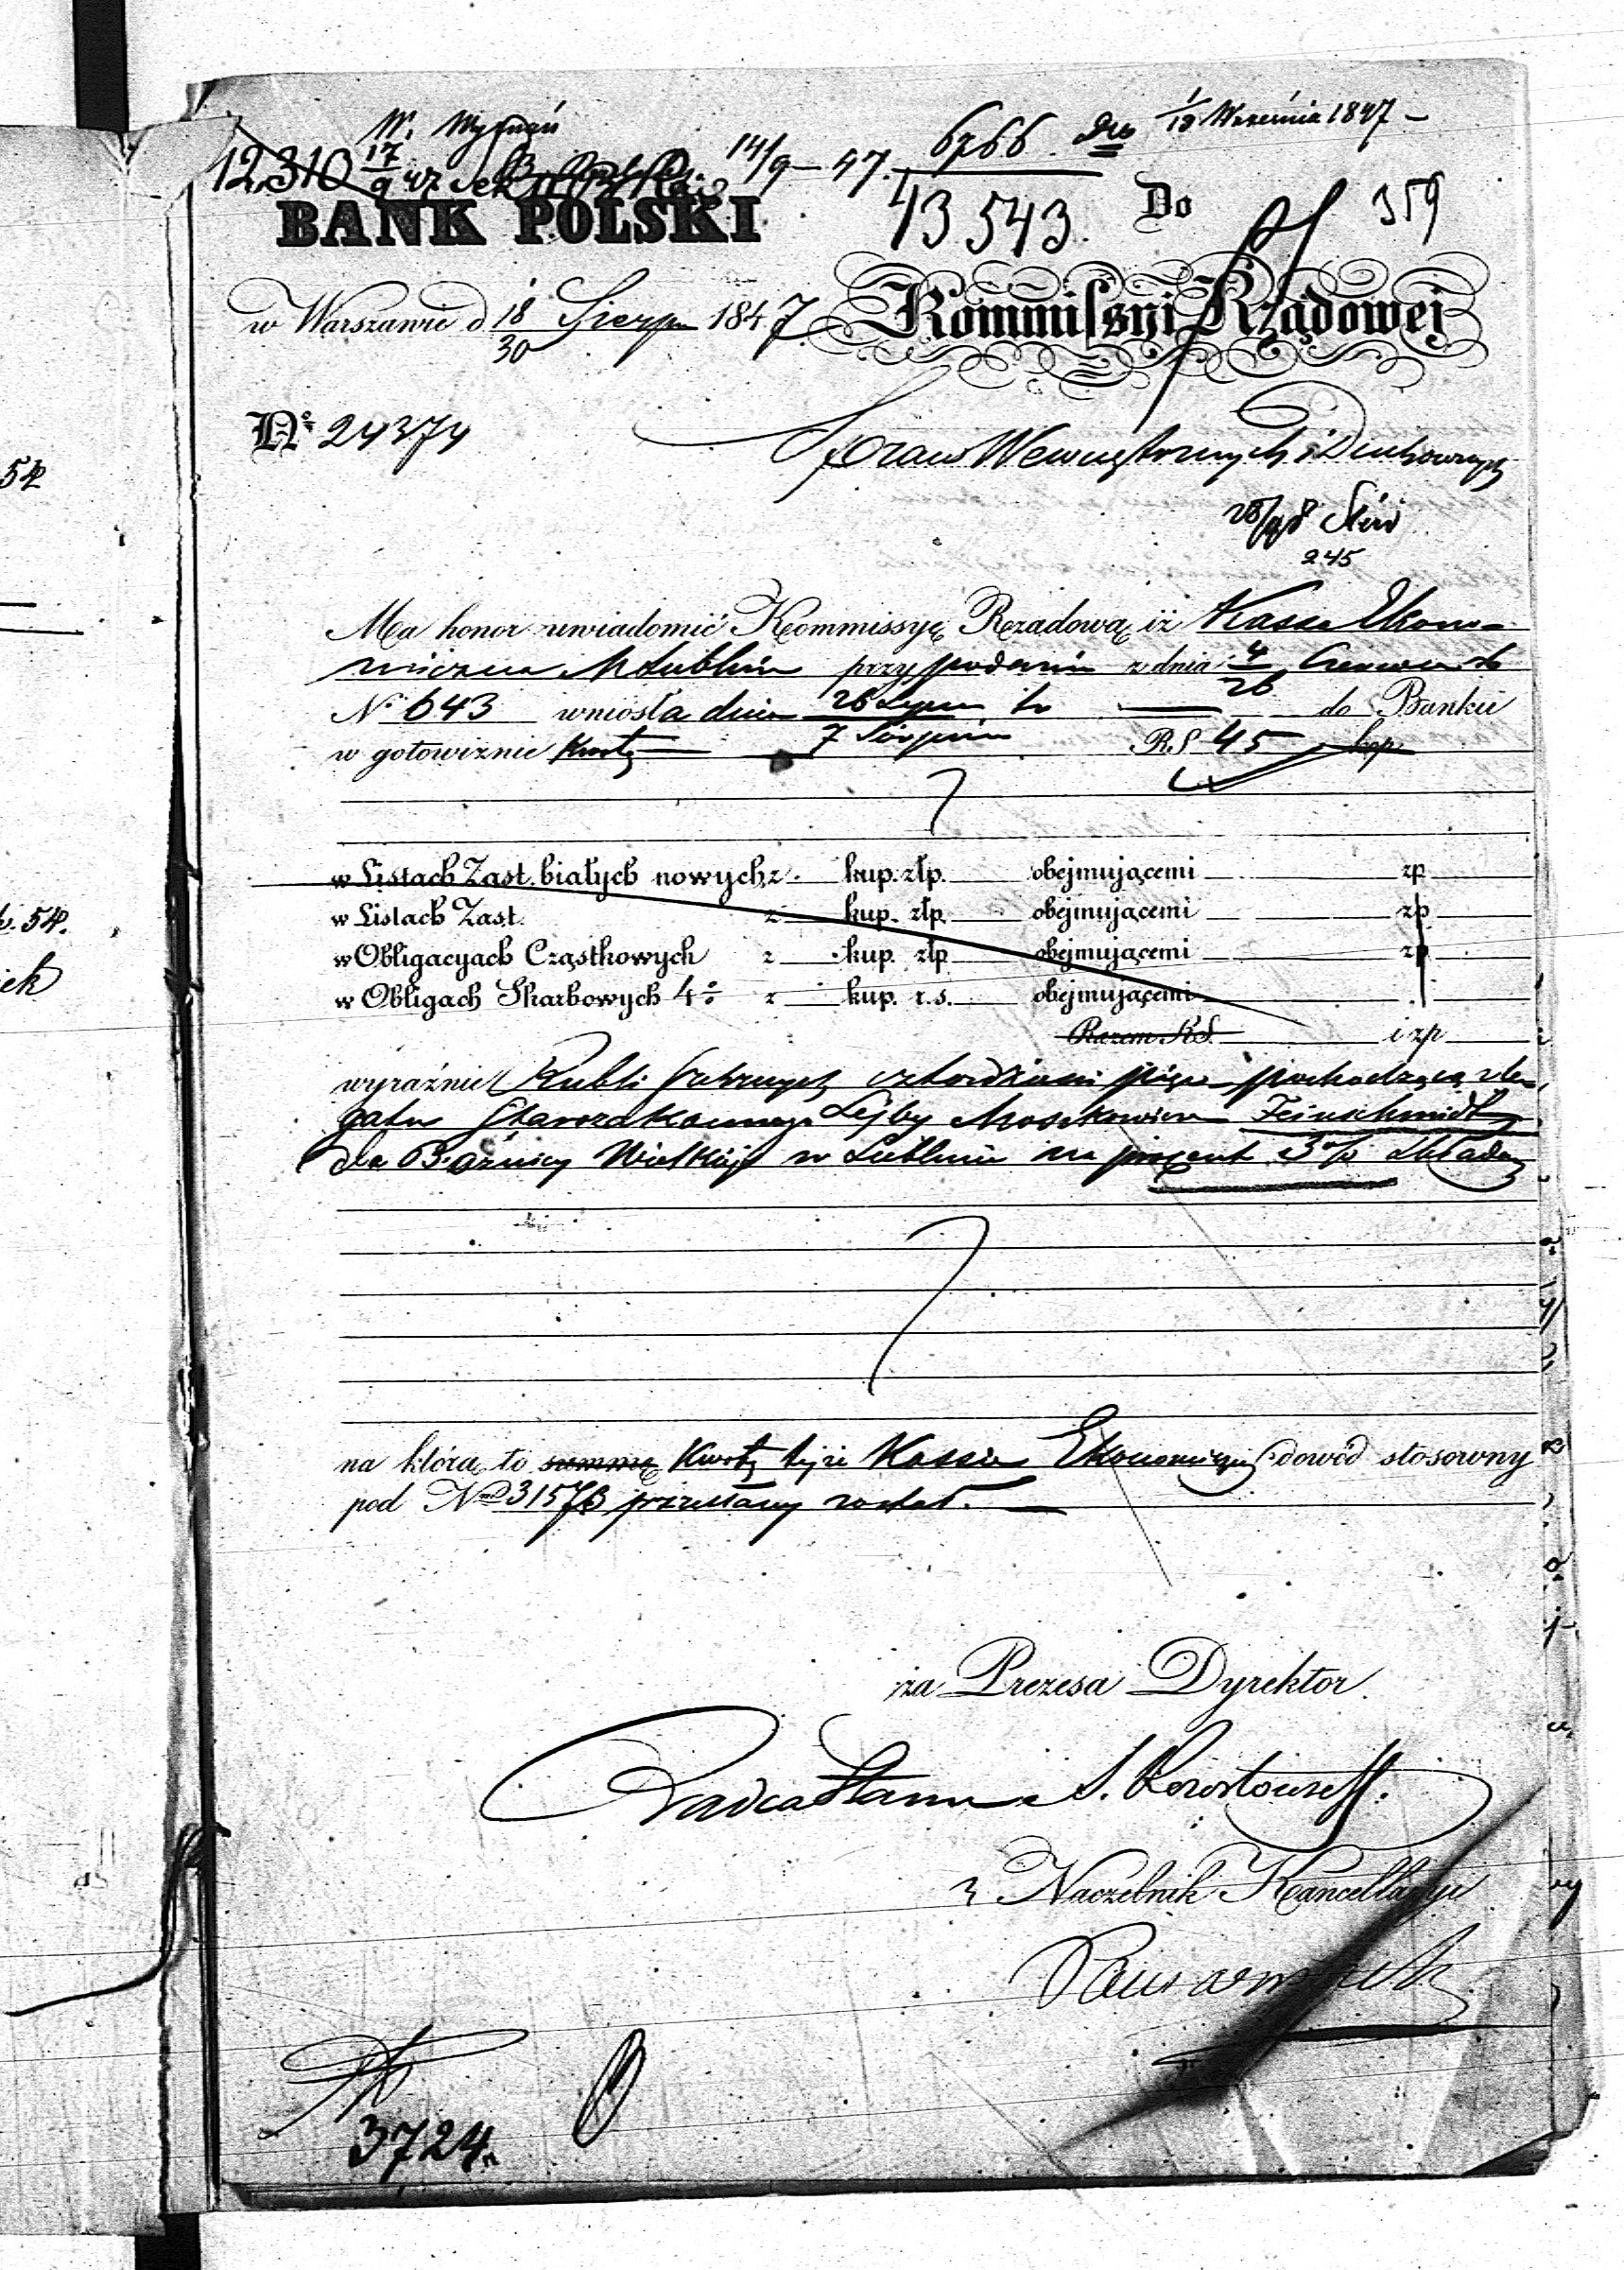 W. Wyznań
12,310 17/9 47 14/9 – 47. 6766 dto 1/13 Września 1847 –
13543. Do 359
BANK POLSKI
w Warszawie d 18/30 Sierpn 1847 Kommissyi Rządowej
No 24374 Spraw Wewnętrznych i Duchownych
245
Ma honor uwiadomić Kommissyę Rządową, iż Kassa Ekono-
miczna M Lublina przy podaniu z dnia Czerwca
No 643 wniosła dnia 26 Lipca do Banku
w gotowiźnie kwotę 7 Sierpnia R.S 45 kop
w Listach Zast. białych nowych z kup. złp. obejmującemi zp
w Listach Zast. z kup. złp. obejmującemi zp
w Obligacyach Cząstkowych z kup. złp obejmującemi zp
w Obligach Skarbowych 4% z kup. r.s. obejmującemi
Razem R.S. i zp
wyraźnie Rubli srebrnych czterdzieści pięć pochodzącą z le-
gatu Starozakonnego Lejby Moszkowicza Feinschmidt
dla Bożnicy Wielkiej w Lublinie na procent 3% składa
na którą to summę kwotę tejże Kassie Ekonomicznej dowód stosowny
pod Nrem 31573 przesłany został.
za Prezesa Dyrektor
Radca Stanu S.
Naczelnik Kancellaryi
3724.
54
54.